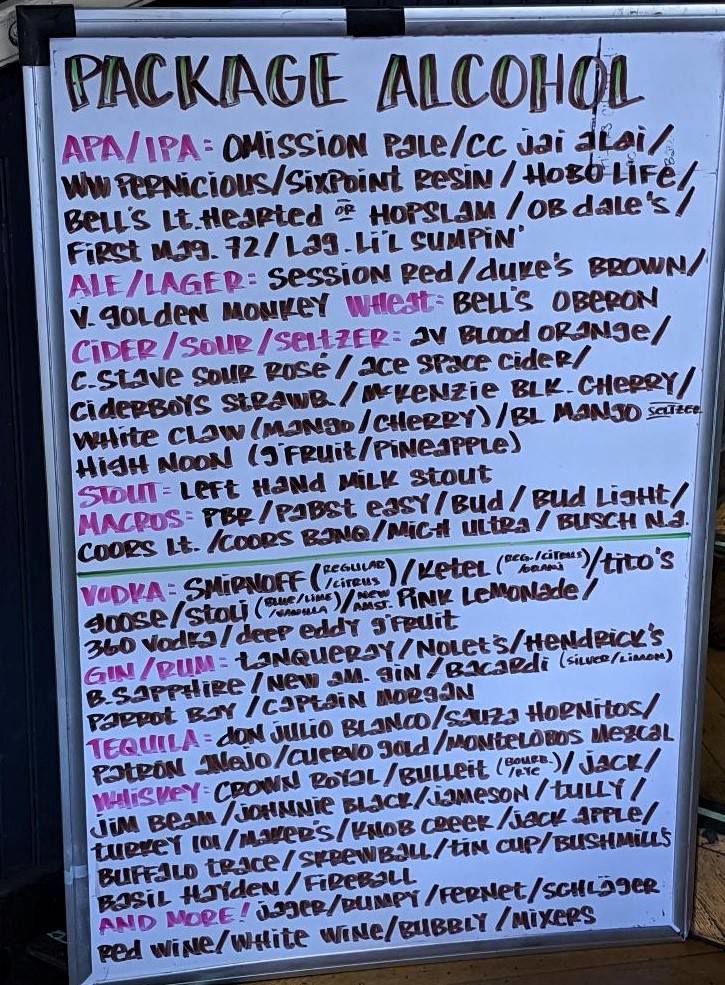 PACKAGE ALCOHOL
APA/IPA: OMISSION PALE/CC JAI ALAI/
WW PERNICIOUS/SIXPOINT RESIN/HOBO LIFE/
BELL'S LT. HEARTED OR HOPSLAM/OB DALE'S/
FIRST MAG. 72/LAG. LI'L SUMPIN'
ALE/LAGER: SESSION RED/DUKE'S BROWN/
V. GOLDEN MONKEY WHEAT: BELL'S OBERON
CIDER/SOUR/SELTZER: AV BLOOD ORANGE/
C. STAVE SOUR ROSÉ/ACE SPACE CIDER/
CIDERBOYS STRAWB./McKENZIE BLK. CHERRY/
WHITE CLAW (MANGO/CHERRY)/BL MANGO SELTZER
HIGH NOON (G'FRUIT/PINEAPPLE)
STOUT: LEFT HAND MILK STOUT
MACROS: PBR/PABST EASY/BUD/BUD LIGHT/
COORS LT./COORS BANQ/MICH ULTRA/BUSCH N.A.
VODKA: SMIRNOFF (REGULAR/CITRUS)/KETEL (REG./CITRUS/ORANJ)/TITO'S
GOOSE/STOLI (BLUE/LIME/VANILLA)/NEW AMST. PINK LEMONADE/
360 VODKA/DEEP EDDY G'FRUIT
GIN/RUM: TANQUERAY/NOLET'S/HENDRICK'S
B. SAPPHIRE/NEW AM. GIN/BACARDI (SILVER/LIMON)
PARROT BAY/CAPTAIN MORGAN
TEQUILA: DON JULIO BLANCO/SAUZA HORNITOS/
PATRÓN AÑEJO/CUERVO GOLD/MONTELOBOS MEZCAL
WHISKEY: CROWN ROYAL/BULLEIT (BOURB./RYE)/JACK/
JIM BEAM/JOHNNIE BLACK/JAMESON/TULLY/
TURKEY 101/MAKER'S/KNOB CREEK/JACK APPLE/
BUFFALO TRACE/SKREWBALL/TIN CUP/BUSHMILLS
BASIL HAYDEN/FIREBALL
AND MORE! JAGER/RUMPY/FERNET/SCHLÄGER
RED WINE/WHITE WINE/BUBBLY/MIXERS